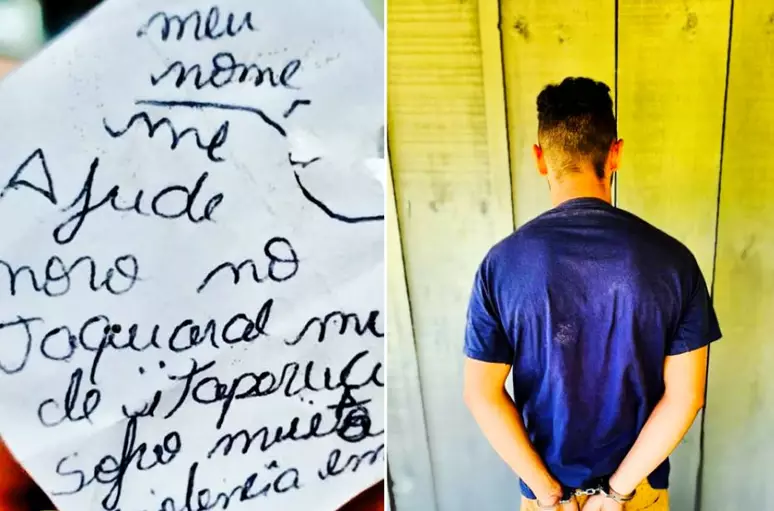 meu
nome
me
Ajude
moro no
Jaquaral mu
de itaperuçu
sofro muito
violencia em